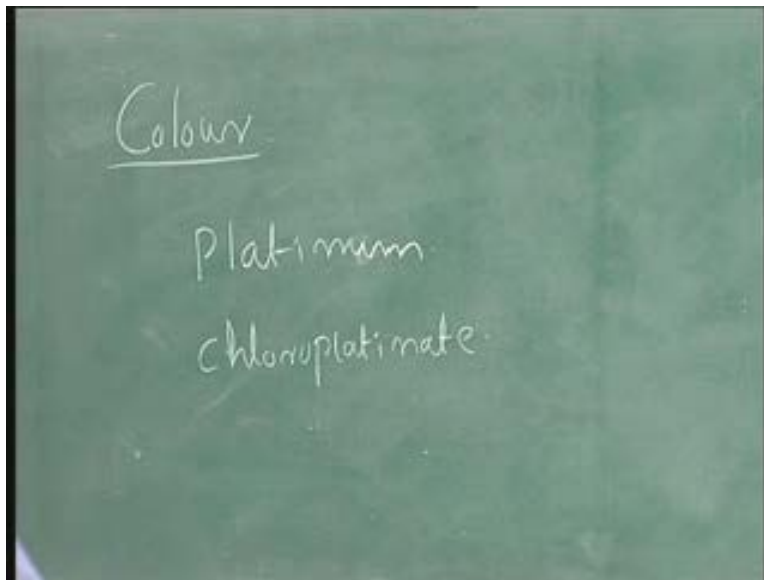 Colour
Platinum
chloroplatinate.